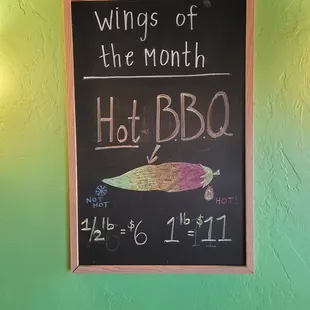 Wings of
the Month
Hot BBQ
NOT
HOT
HOT!
1/2 lb = $6
1 lb = $11